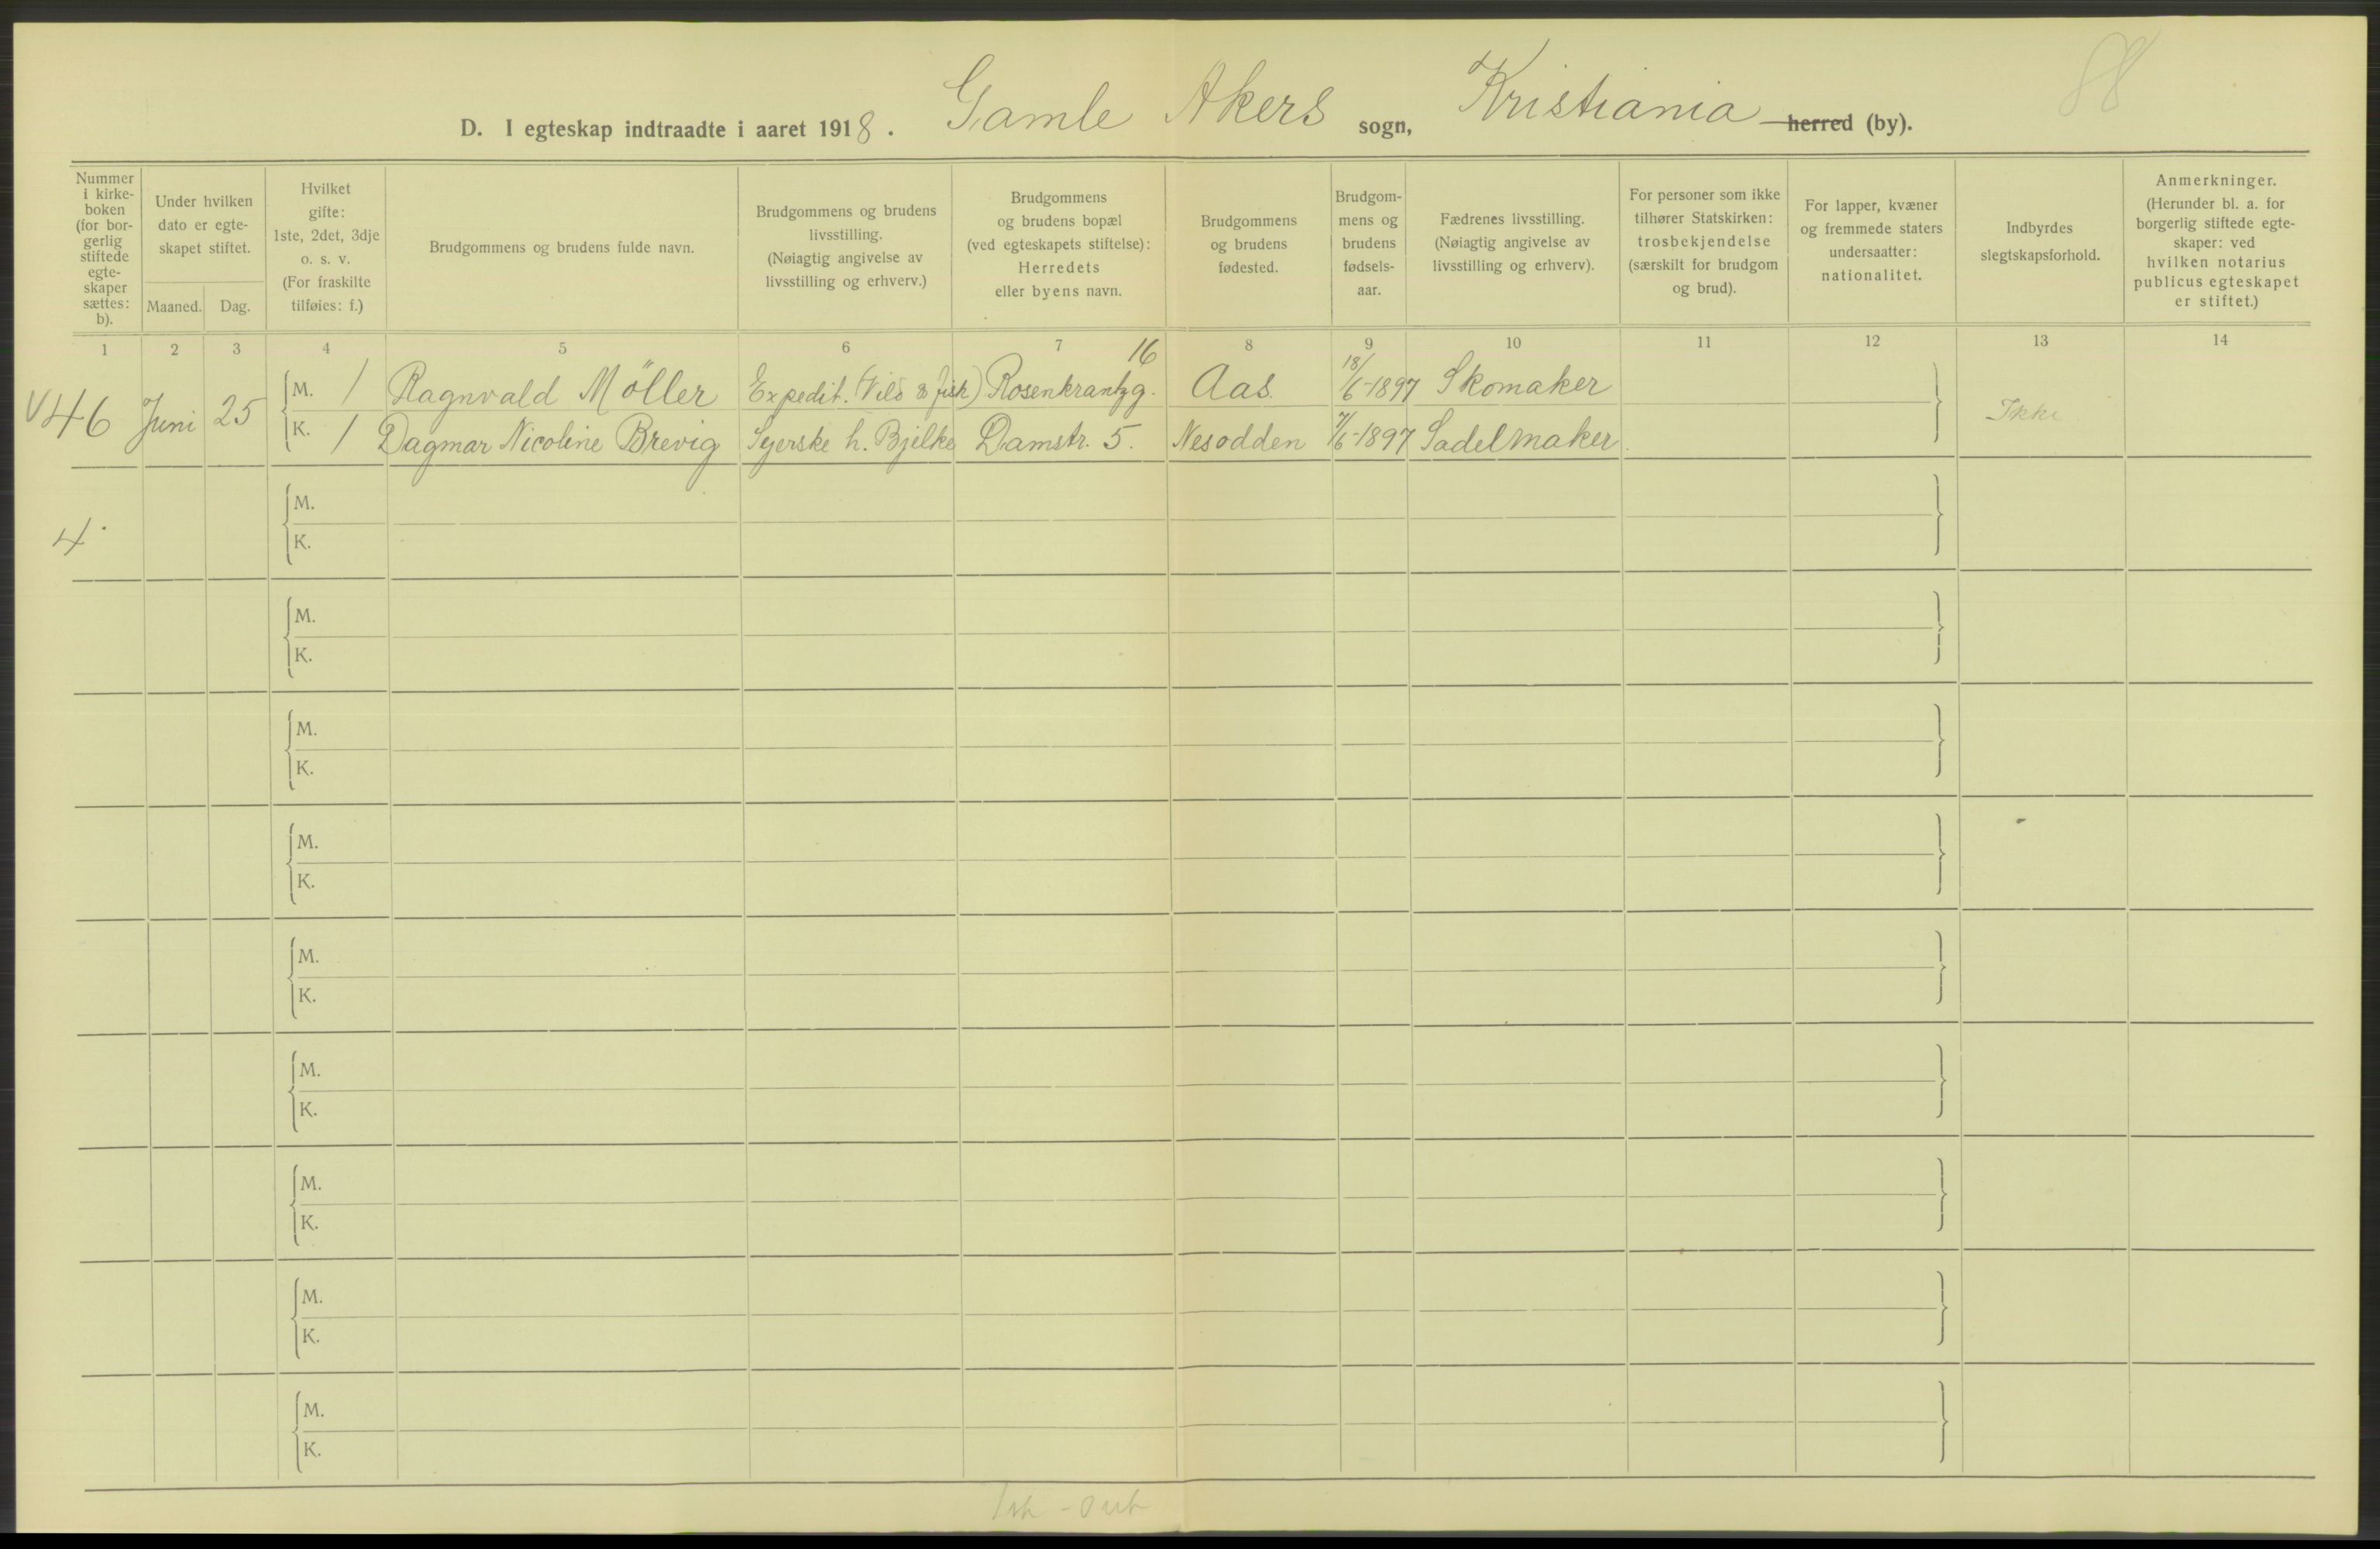 88
D. I egteskap indtraadte i aaret 1918. Gamle Akers sogn, Kristiania herred (by).
Nummer i kirke-boken (for bor-gerlig stiftede egte-skaper sættes: b).
Under hvilken dato er egte-skapet stiftet.
Maaned. Dag.
Hvilket gifte: 1ste, 2det, 3dje o. s. v. (For fraskilte tilføies: f.)
Brudgommens og brudens fulde navn.
Brudgommens og brudens livsstilling. (Nøiagtig angivelse av livsstilling og erhverv.)
Brudgommens og brudens bopæl (ved egteskapets stiftelse): Herredets eller byens navn.
Brudgommens og brudens fødested.
Brudgom-mens og brudens fødsels-aar.
Fædrenes livsstilling. (Nøiagtig angivelse av livsstilling og erhverv).
For personer som ikke tilhører Statskirken: trosbekjendelse (særskilt for brudgom og brud).
For lapper, kvæner og fremmede staters undersaatter: nationalitet.
Indbyrdes slegtskapsforhold.
Anmerkninger. (Herunder bl. a. for borgerlig stiftede egte-skaper: ved hvilken notarius publicus egteskapet er stiftet.)
1 2 3 4 5 6 7 8 9 10 11 12 13 14
V 46 Juni 25 M. 1 Ragnvald Möller Expedit. (Vild & fisk) Rosenkrantzg. 16 Aas. 18/6-1897 Skomaker
K. 1 Dagmar Nicoline Brevig Syerske h. Bjelke Damstr. 5. Nesodden 7/6-1897 Sadelmaker. Ikke
4.
M.
K.
M.
K.
M.
K.
M.
K.
M.
K.
M.
K.
M.
K.
M.
K.
M.
K.